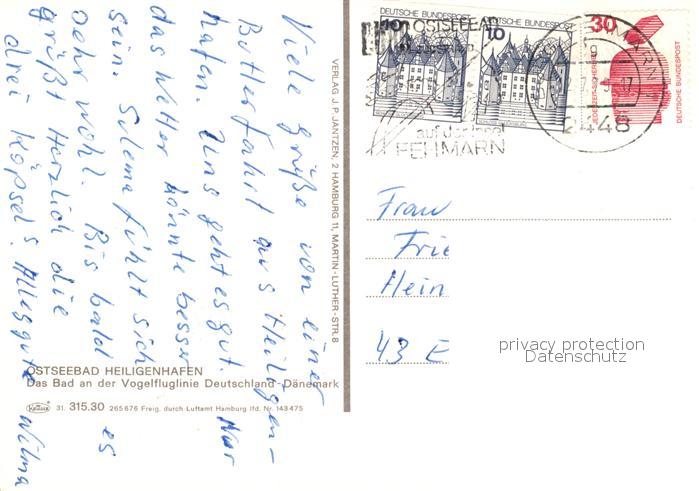 Viele Grüße von einer
Butterfahrt aus Heiligen-
hafen. Uns geht es gut. Nur
das Wetter könnte besser
sein. fühlt sich
sehr wohl. Bis bald es
grüßt Herzlich die
drei Köpsel's. Alles gute Wilma
OSTSEEBAD HEILIGENHAFEN
Das Bad an der Vogelfluglinie Deutschland-Dänemark
Krüger 31. 315.30 265676 Freig. durch Luftamt Hamburg lfd. Nr. 143475
VERLAG J. P. JANTZEN, 2 HAMBURG 11, MARTIN-LUTHER-STR. 8
DEUTSCHE BUNDESPOST
10
DEUTSCHE BUNDESPOST
10
30
JEDERZEIT SICHERHEIT
DEUTSCHE BUNDESPOST
OSTSEEBAD
auf der Insel
FEHMARN
2448
Frau
Frie
Hein
43 E
privacy protection
Datenschutz